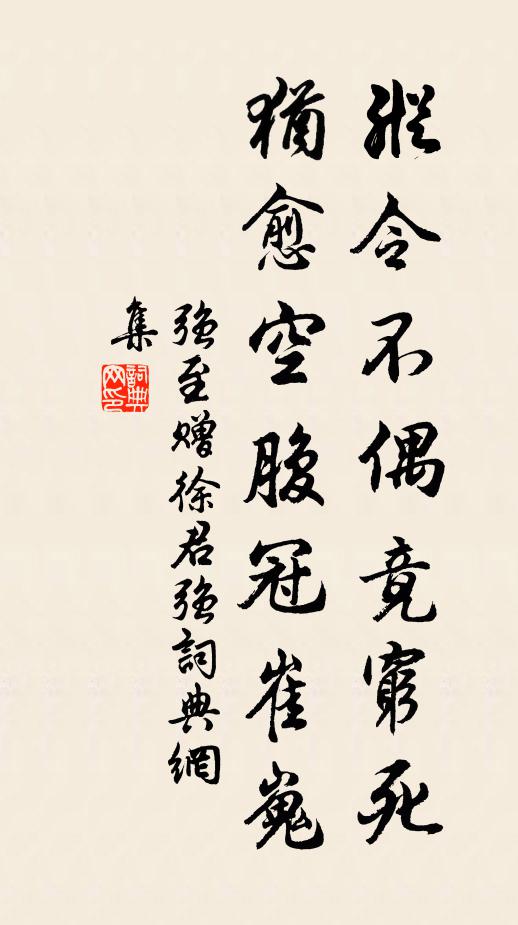 縱令不偶竟窮死
猶愈空腹冠崔嵬
強至贈徐君強詞典網
集
詞典網印